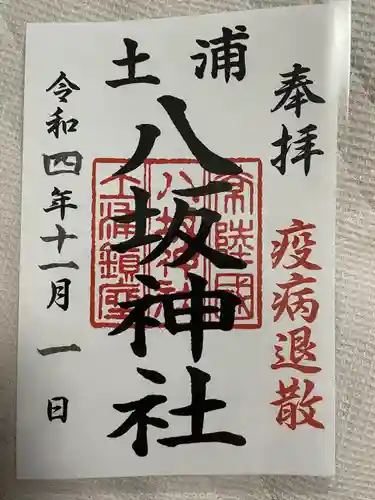 奉拝
疫病退散
土浦
八坂神社
常陸國
八坂神社
土浦鎮座
令和四年十一月一日